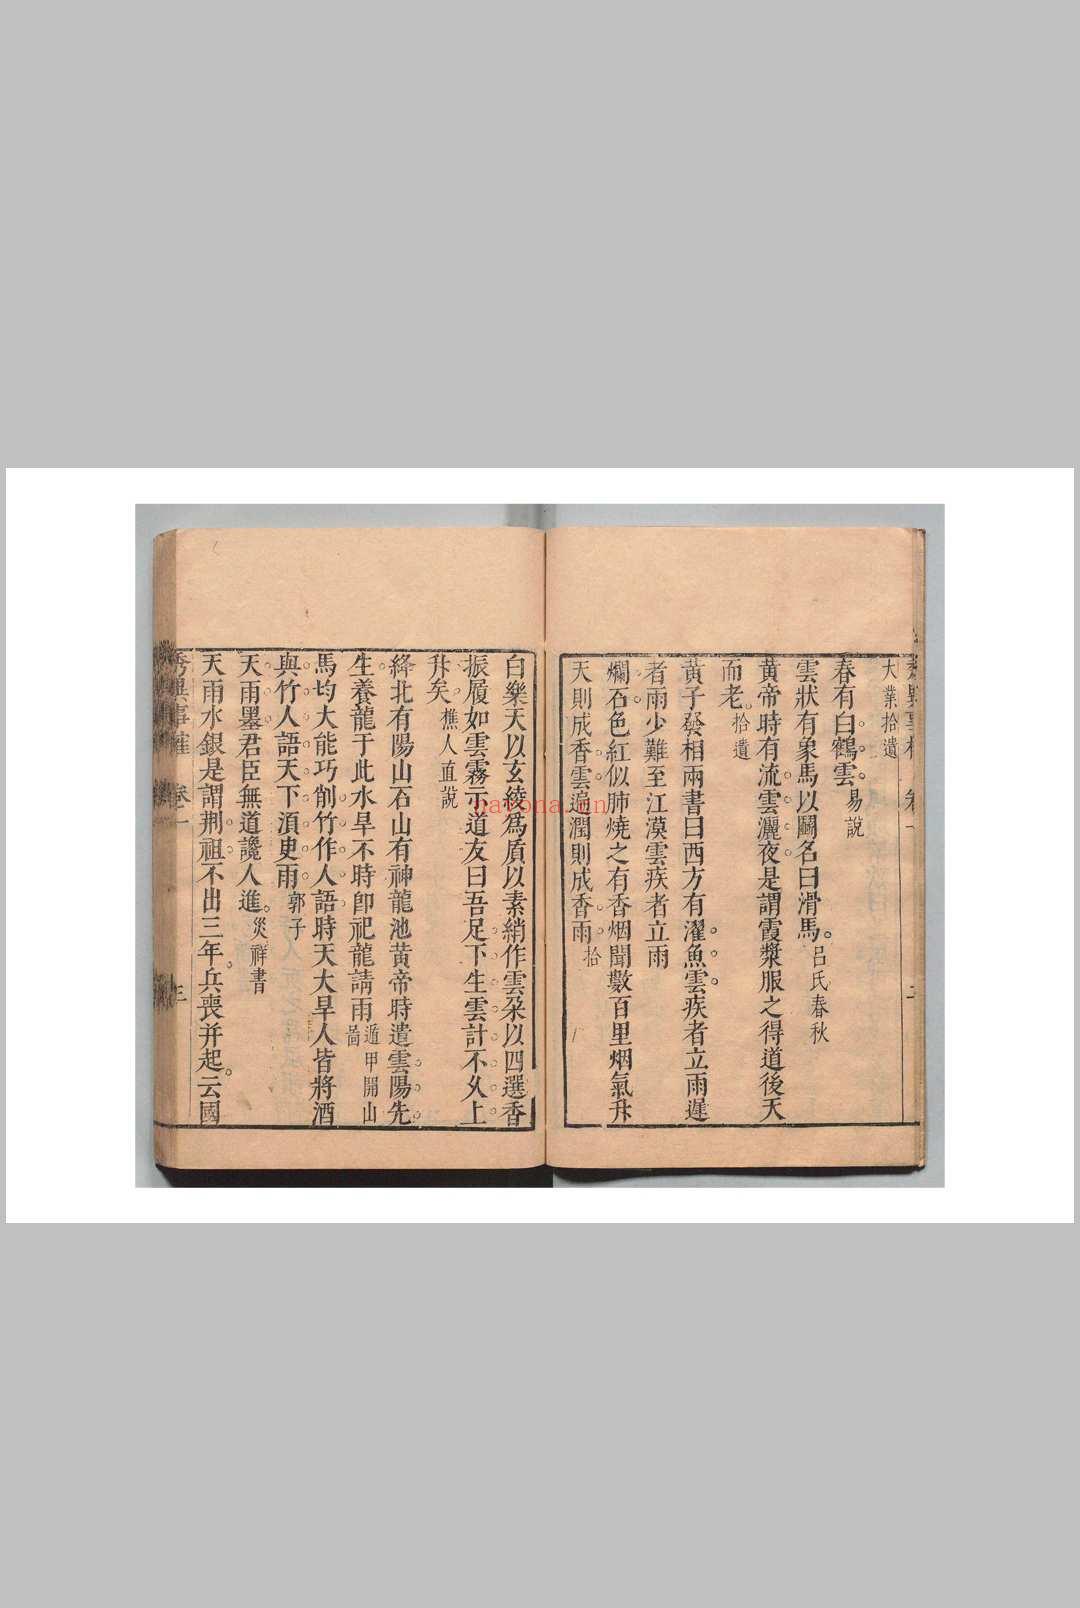 大業拾遺
春有白鶴雲易說
雲狀有象馬以鬬名曰滑馬吕氏春秋
黄帝時有流雲灑夜是謂霞漿服之得道後天
而老拾遺
黄子發相雨書曰西方有濯魚雲疾者立雨遲
者雨少難至江漠雲疾者立雨
爛石色紅似肺燒之有香烟聞數百里烟氣升
天則成香雲遍潤則成香雨拾
白樂天以玄綾爲質以素綃作雲朶以四選香
振履如雲霧示道友曰吾足下生雲計不久上
升矣樵人直說
絳北有陽山石山有神龍池黄帝時遣雲陽先
生養龍于此水旱不時卽祀龍請雨遁甲開山啚
馬均大能巧削竹作人語時天大旱人皆將酒
與竹人語天下湏臾雨郭子
天雨墨君臣無道讒人進災祥書
天雨水銀是謂荆祖不出三年兵喪并起云國
秀異事 卷一 三
havona.cn